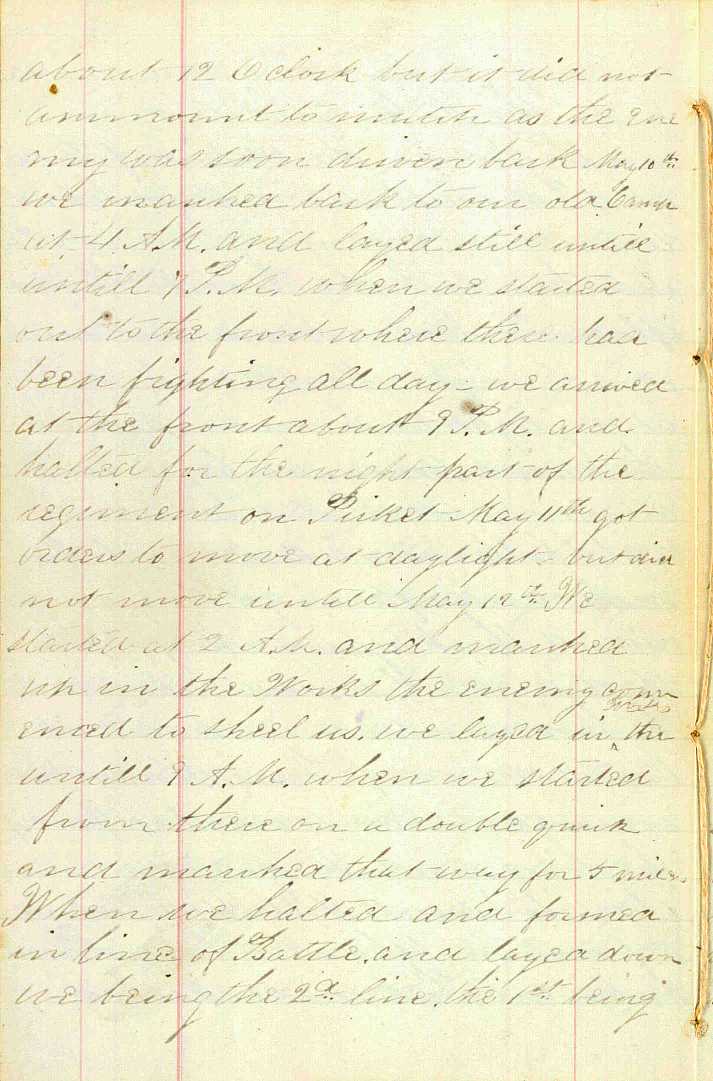 about 12 O clock but it did not
ammount to mutch as the ene
my was soon driven back May 10th
we marched back to our old Camp
at 4 A.M. and layed still untill
untill 7 P.M. when we started
out to the front where there had
been fighting all day - we arrived
at the front about 9 P.M. and
halted for the night part of the
regiment on Picket May 11th got
orders to move at daylight - but did
not move untill May 12th We
started at 2 A.M. and marched
up in the Works the enemy comm
enced to shell us. we layed in ^ the Works
untill 9 A.M. when we started
from there on a double quick
and marched that way for 5 miles.
When we halted and formed
in line of Battle. and layed down
we being the 2d line. the 1st being